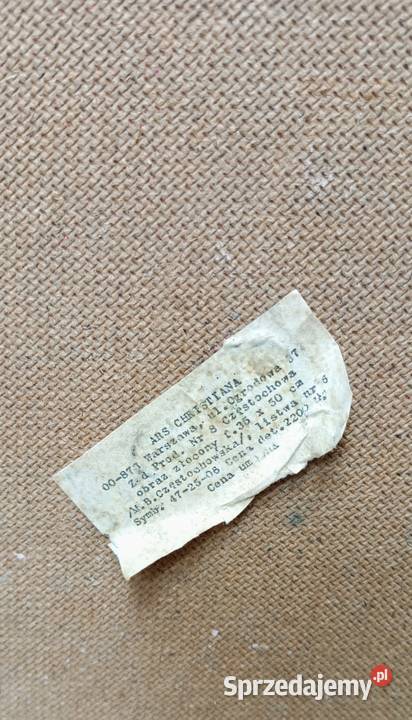 ARS CHRISTIANA
00-873 Warszawa, ul. Ogrodowa 37
Zakł. Prod. Nr 8 Częstochowa
obraz złocony f. 35 x 50 cm
/M.B.Częstochowska/ listwa nr 6
Symb. 47-25-06 Cena det. 2200 zł
Cena
Sprzedajemy.pl